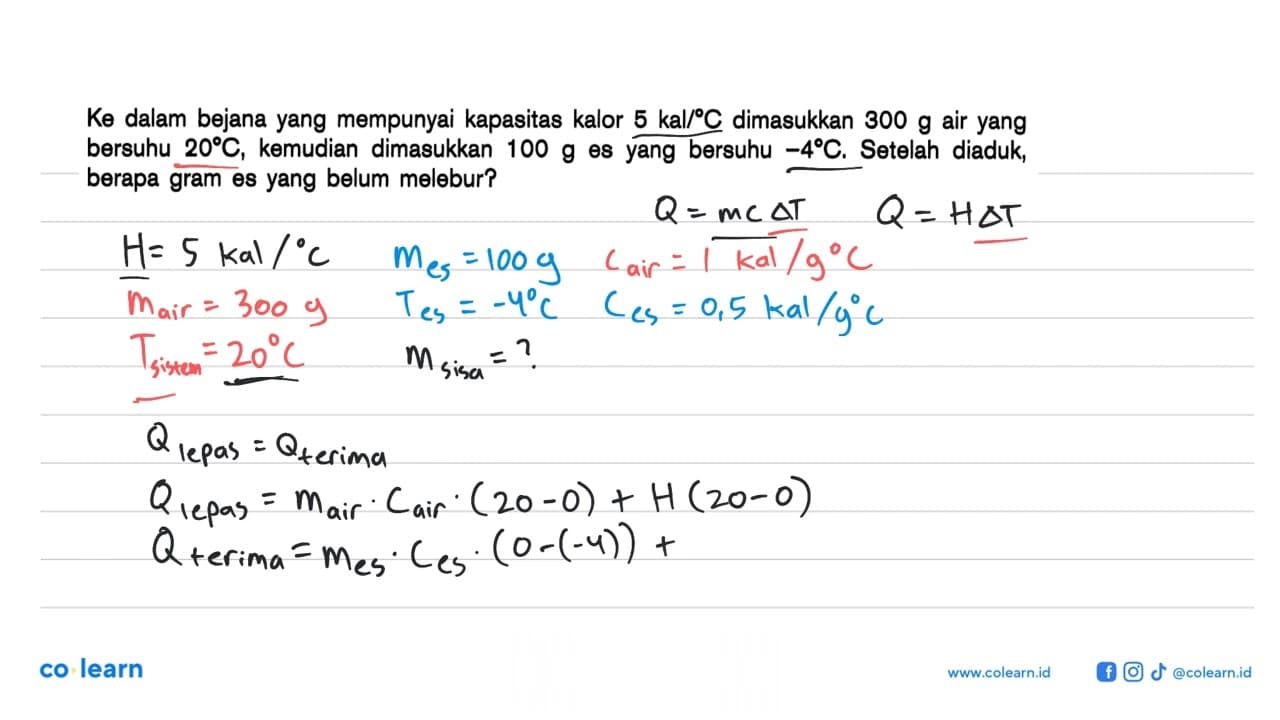 Ke dalam bejana yang mempunyai kapasitas kalor 5 kal/°C dimasukkan 300 g air yang
bersuhu 20°C, kemudian dimasukkan 100 g es yang bersuhu −4°C. Setelah diaduk,
berapa gram es yang belum melebur?
Q = mc ΔT Q = H ΔT
H = 5 kal/°C m es = 100 g c air = 1 kal/g°C
m air = 300 g T es = -4°C c es = 0,5 kal/g°C
T sistem = 20°C m sisa = ?
Q lepas = Q terima
Q lepas = m air . c air . (20-0) + H (20-0)
Q terima = m es . c es . (0-(-4)) +
co learn
www.colearn.id @colearn.id